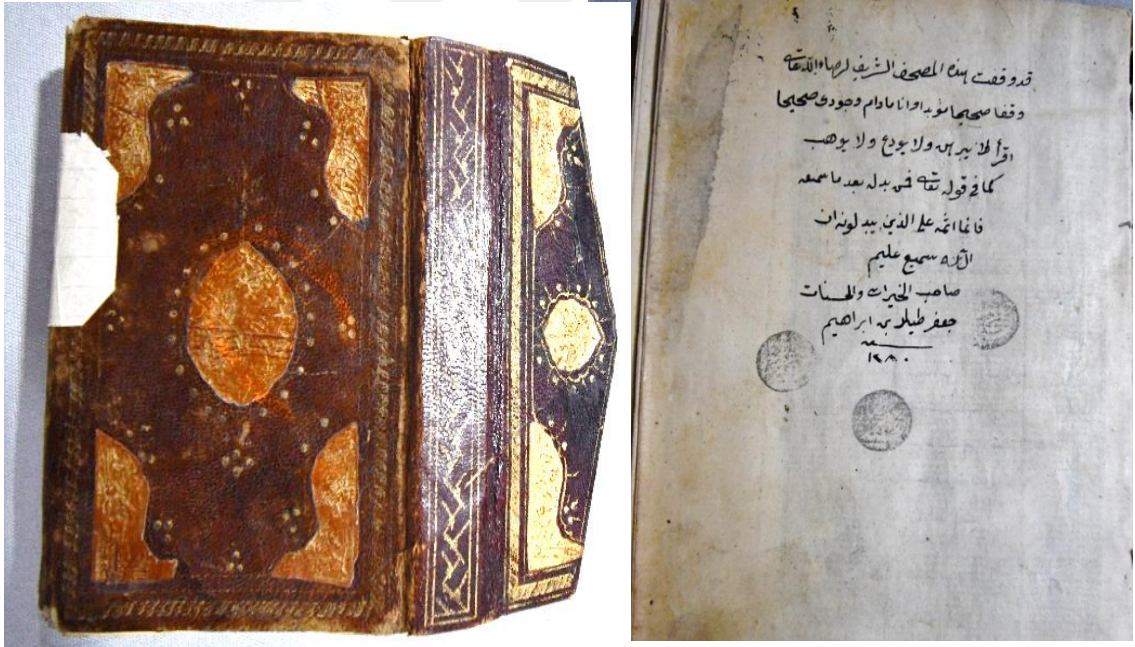 قد وقفت هذه المصحف الشريف لرضاء الله تعالى
وقفا صحيحا مؤبدا وانا مادام وجودى صحيحا
اقرأ لا يرهن ولا يودع ولا يوهب
كما فى قوله تعالى فمن بدله بعد ما سمعه
فانما اثمه على الذين يبدلونه ان
الله سميع عليم
صاحب الخيرات والحسنات
جعفر طيار بن ابراهيم
سنه
١٢٨٠